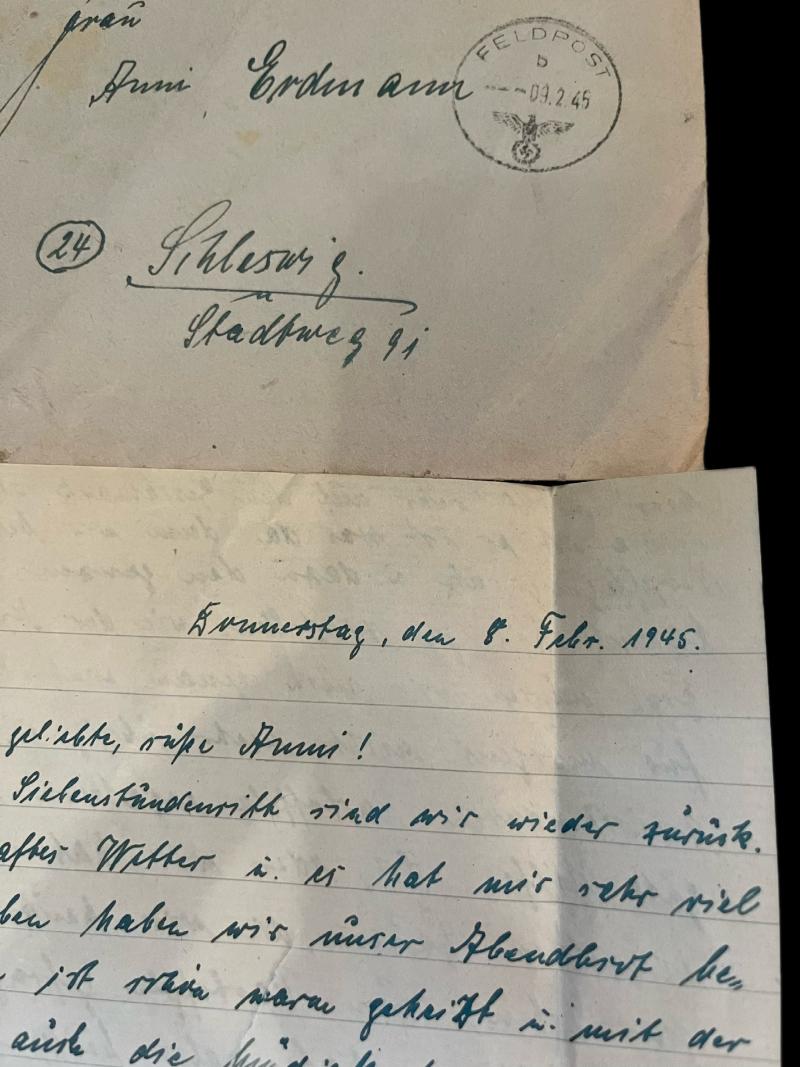 Frau
Anni Erdmann
FELDPOST
b
--09.2.45
24
Schleswig.
Stadtweg 91
Donnerstag, den 8. Febr. 1945.
geliebte, süße Anni!
Siebenstündenritt sind wir wieder zurück.
aftes Wetter u. es hat mir sehr viel
ben haben wir unser Abendbrot be=
ist schön warm geheizt u. mit der
auch die